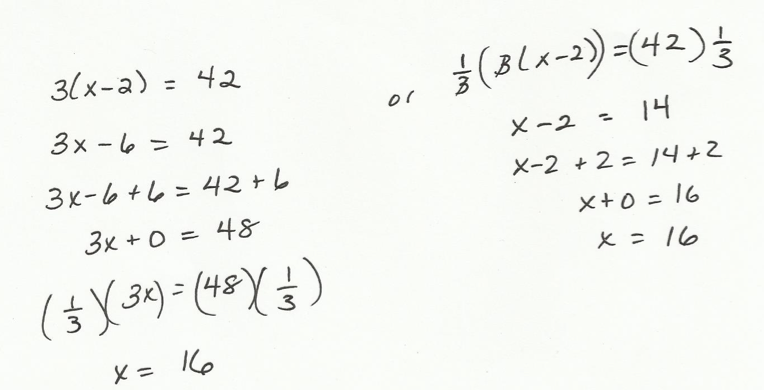 3(x-2) = 42
3x - 6 = 42
3x - 6 + 6 = 42 + 6
3x + 0 = 48
(1/3)(3x) = (48)(1/3)
x = 16
or
1/3(3(x-2)) = (42)1/3
x - 2 = 14
x - 2 + 2 = 14 + 2
x + 0 = 16
x = 16